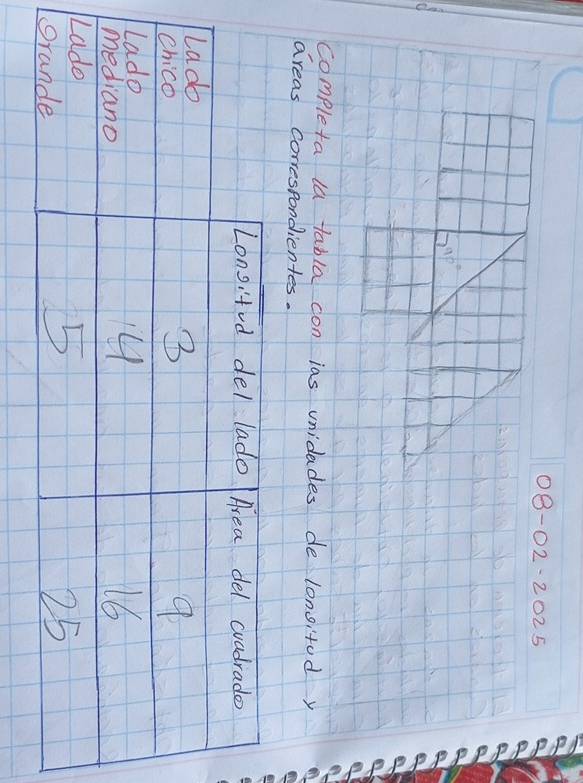 08-02-2025
90°
completa la tabla con las unidades de longitud y
áreas correspondientes.
Longitud del lado Área del cuadrado
Lado chico 3 9
Lado mediano 4 16
Lado grande 5 25